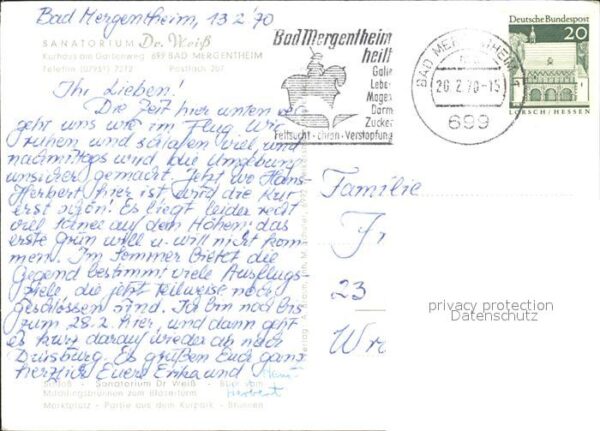 Bad Mergentheim, 13.2.70
SANATORIUM Dr. Weiß
Kurhaus am Gartenweg 699 BAD MERGENTHEIM
Telefon (07931) 7272 Postfach 207
Ihr Lieben!
Die Zeit hier unten ver-
geht uns wie im Flug. Wir
ruhen und schlafen viel und
nachmittags wird die Umgebung
unsicher gemacht. Jetzt wo Hans-
Herbert hier ist wird die Kur
erst schön. Es liegt leider recht
viel Schnee auf den Höhen; das
erste Grün will u. will nicht kom-
men. Im Sommer bietet die
Gegend bestimmt viele Ausflugs-
ziele, die jetzt teilweise noch
geschlossen sind. Ich bin noch bis
zum 28.2. hier, und dann geht
es kurz darauf wieder ab nach
Duisburg. Es grüßen Euch ganz
herzlich Eure Erika und Hans-
Herbert
Sanatorium Dr. Weiß
Marktplatz - Partie aus dem Kurpark - Brunnen
Bad Mergentheim
heilt
Galle
Leber
Magen
Darm
Zucker
Fettsucht - chron. Verstopfung
BAD MERGENTHEIM 1
20.2.70-15
699
Deutsche Bundespost
20
LORSCH/HESSEN
Familie
Fr
23
privacy protection
Datenschutz